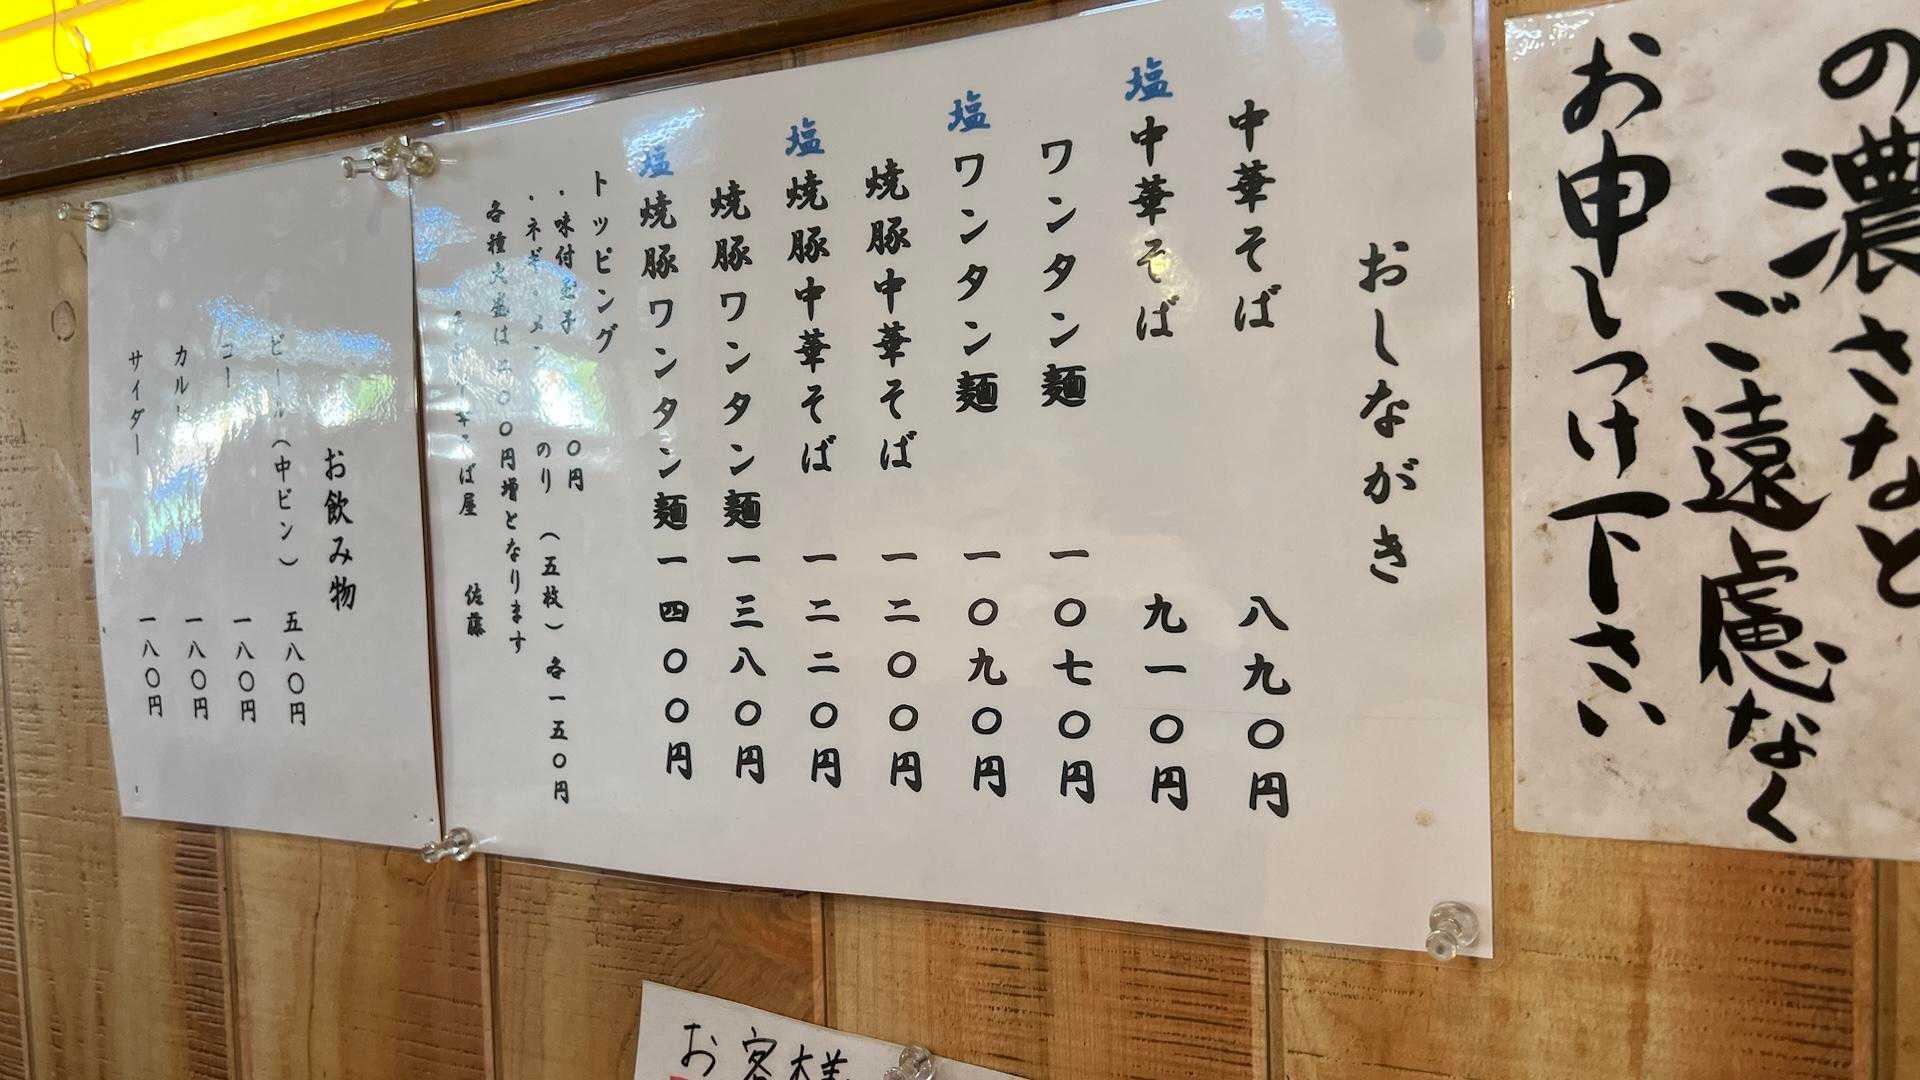 の濃さなど
ご遠慮なく
お申しつけ下さい
おしながき
中華そば 八九〇円
塩中華そば 九一〇円
ワンタン麺 一〇七〇円
塩ワンタン麺 一〇九〇円
焼豚中華そば 一二〇〇円
塩焼豚中華そば 一二二〇円
焼豚ワンタン麺 一三八〇円
塩焼豚ワンタン麺 一四〇〇円
トッピング
・味付玉子 〇円
・ネギ・メン のり (五枚) 各一五〇円
各種大盛は二〇〇円増となります
そば屋 佐藤
お飲み物
ビール(中ビン) 五八〇円
コー 一八〇円
カル 一八〇円
サイダー 一八〇円
お客様